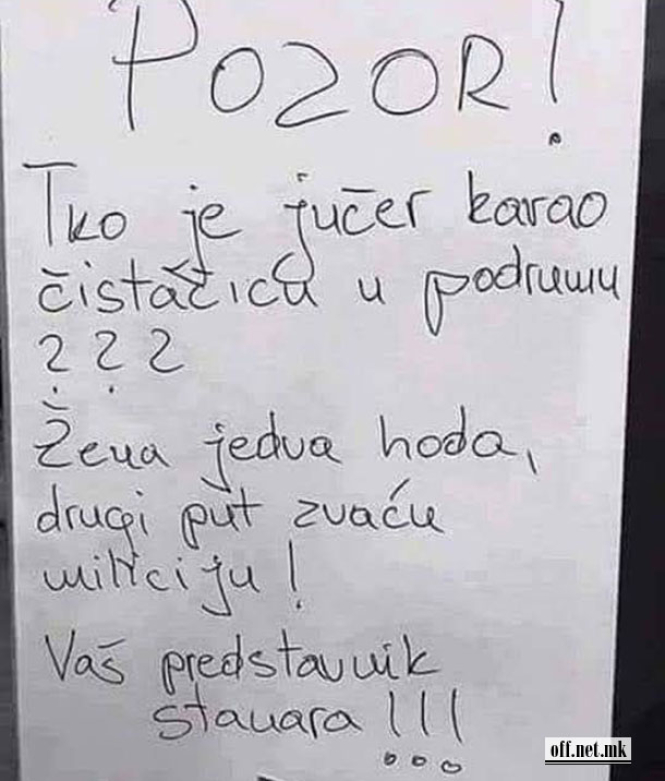 POZOR!
Tko je jučer karao
čistačicu u podrumu
???
Žena jedva hoda,
drugi put zvaću
miliciju!
Vaš predstavnik
stanara!!!
off.net.mk